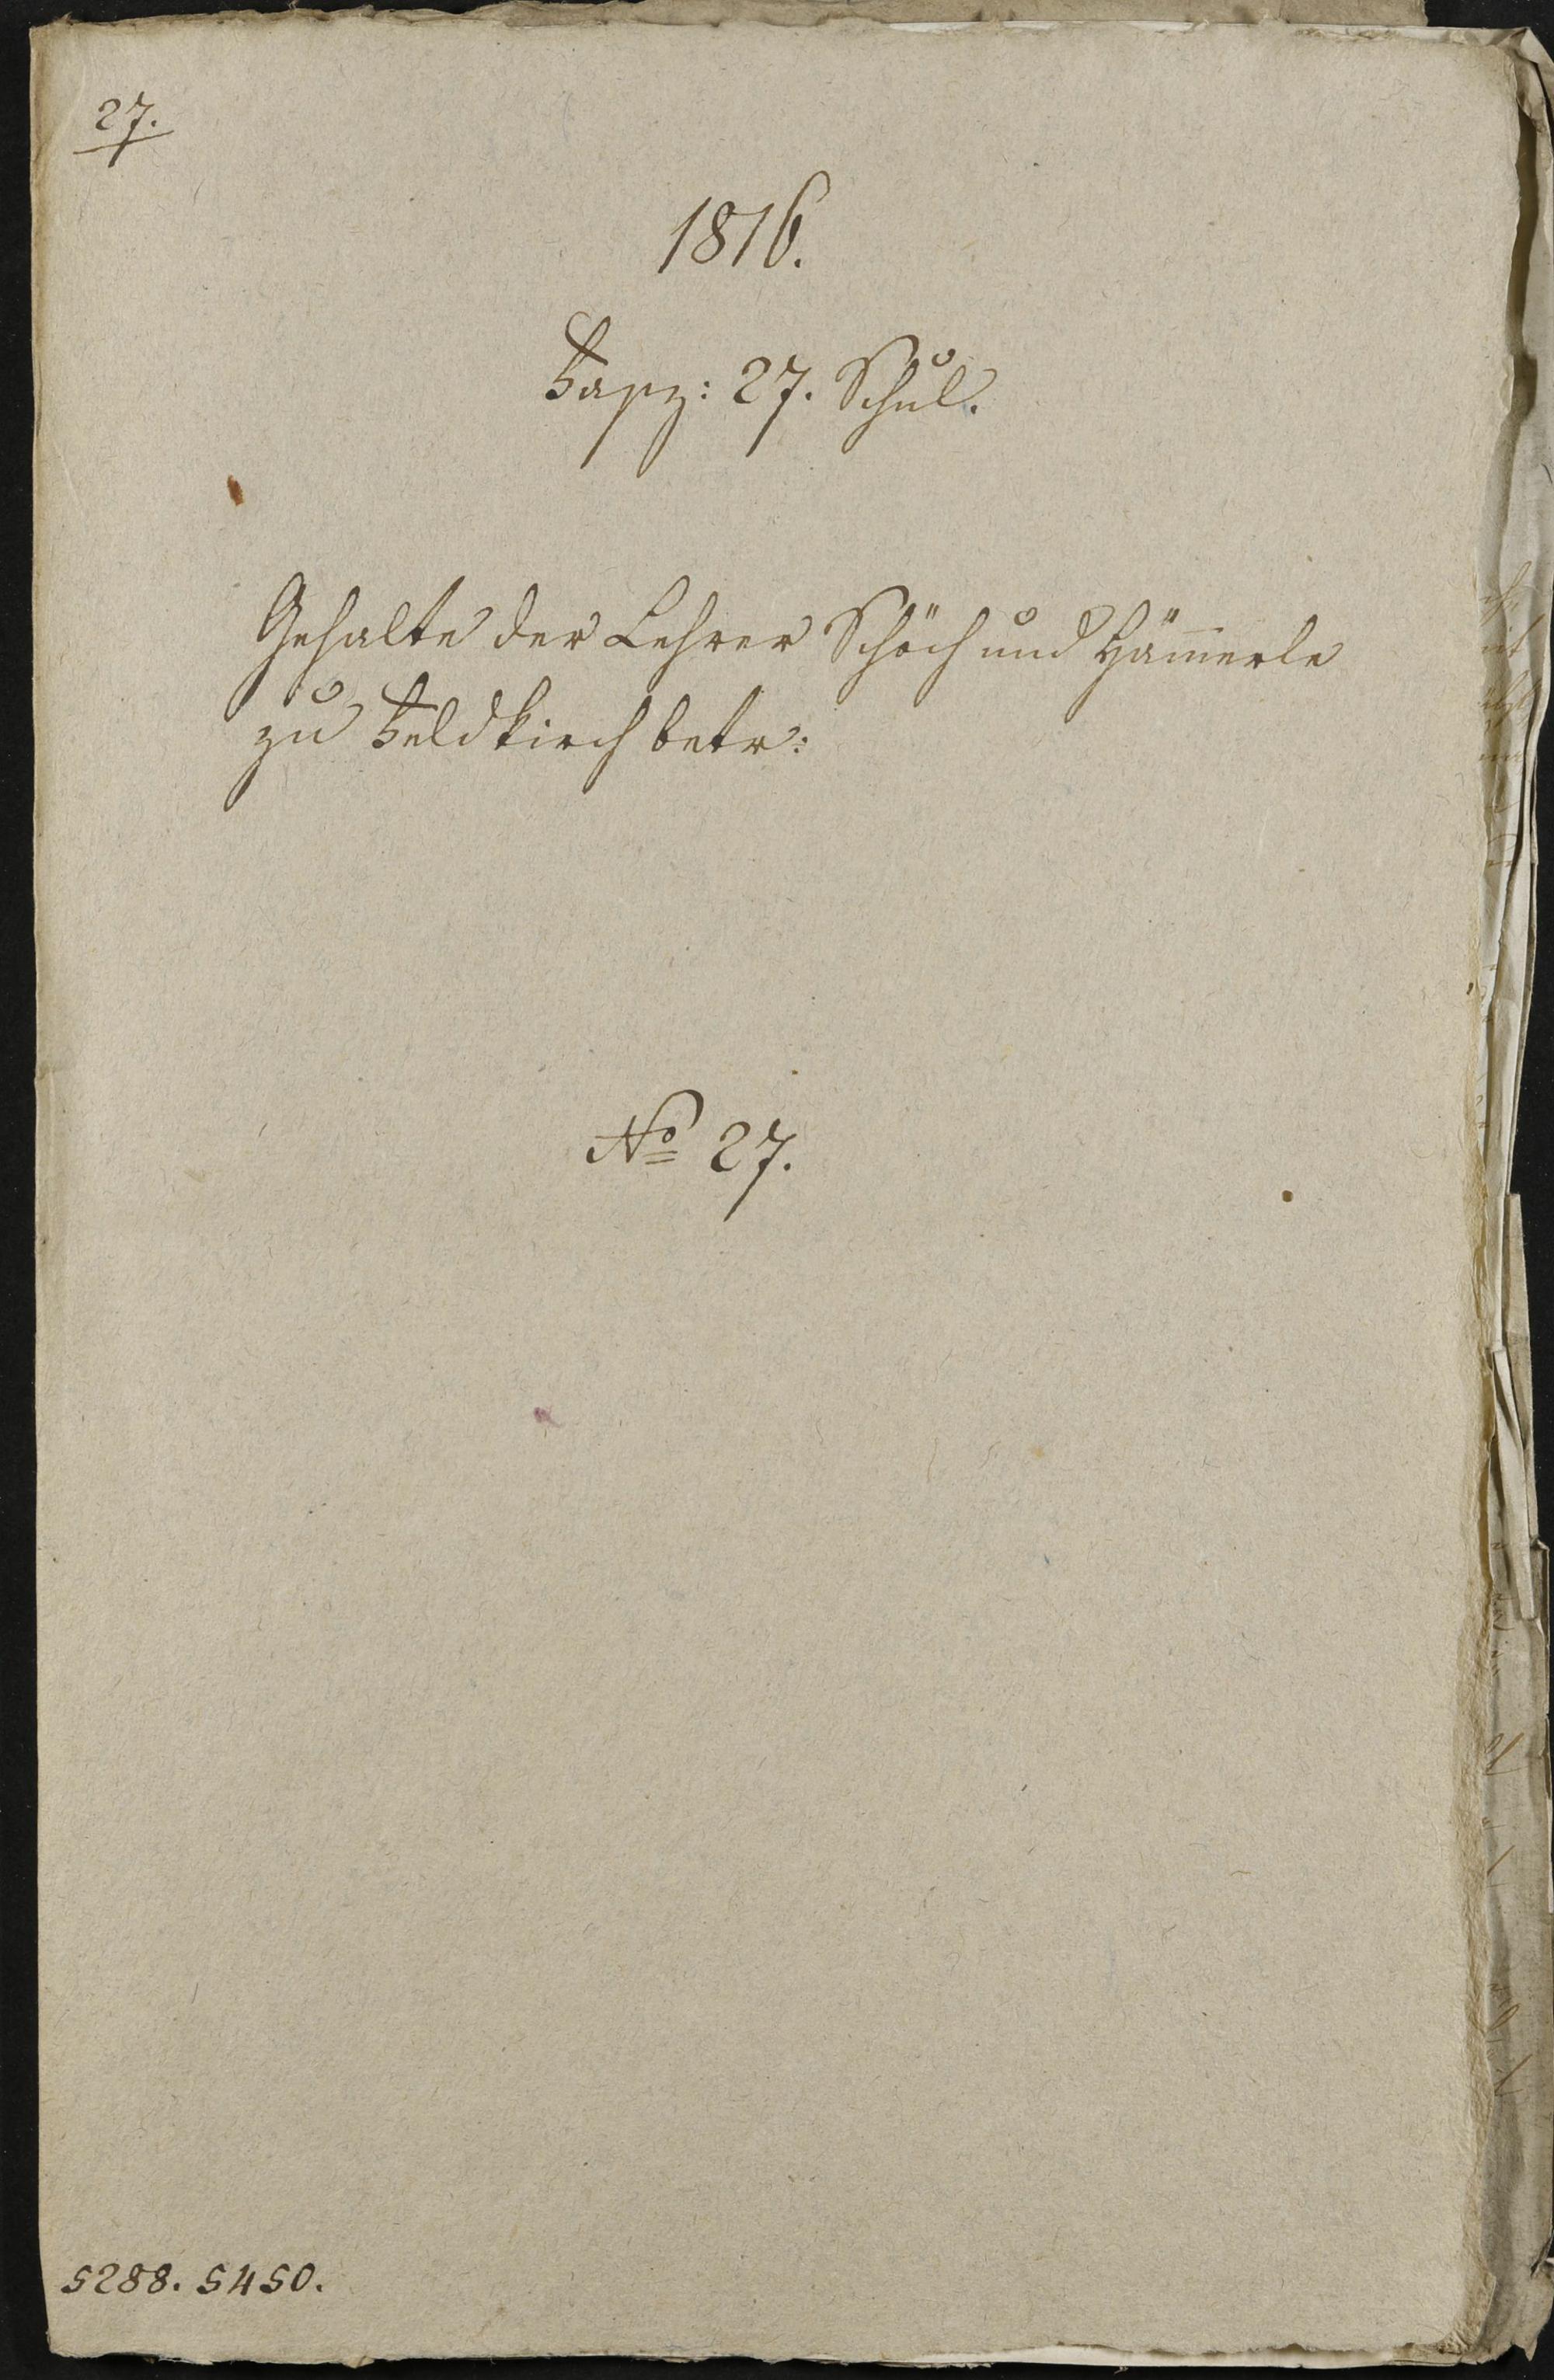 27.
1816.
Fasz: 27. Schul.
Gehalte der Lehrer Schöch und Häm̄erle
zu Feldkirch betr:
No 27.
5288. 5450.